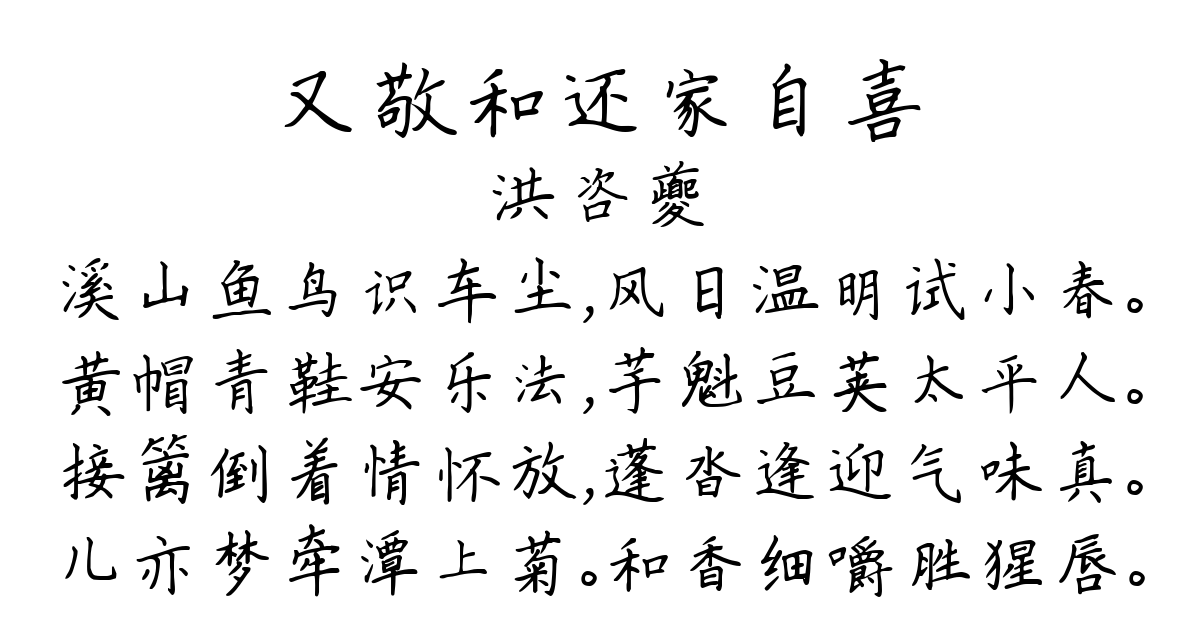 又敬和还家自喜
洪咨夔
溪山鱼鸟识车尘,风日温明试小春。
黄帽青鞋安乐法,芋魁豆荚太平人。
接篱倒着情怀放,蓬沓逢迎气味真。
儿亦梦牵潭上菊。和香细嚼胜猩唇。